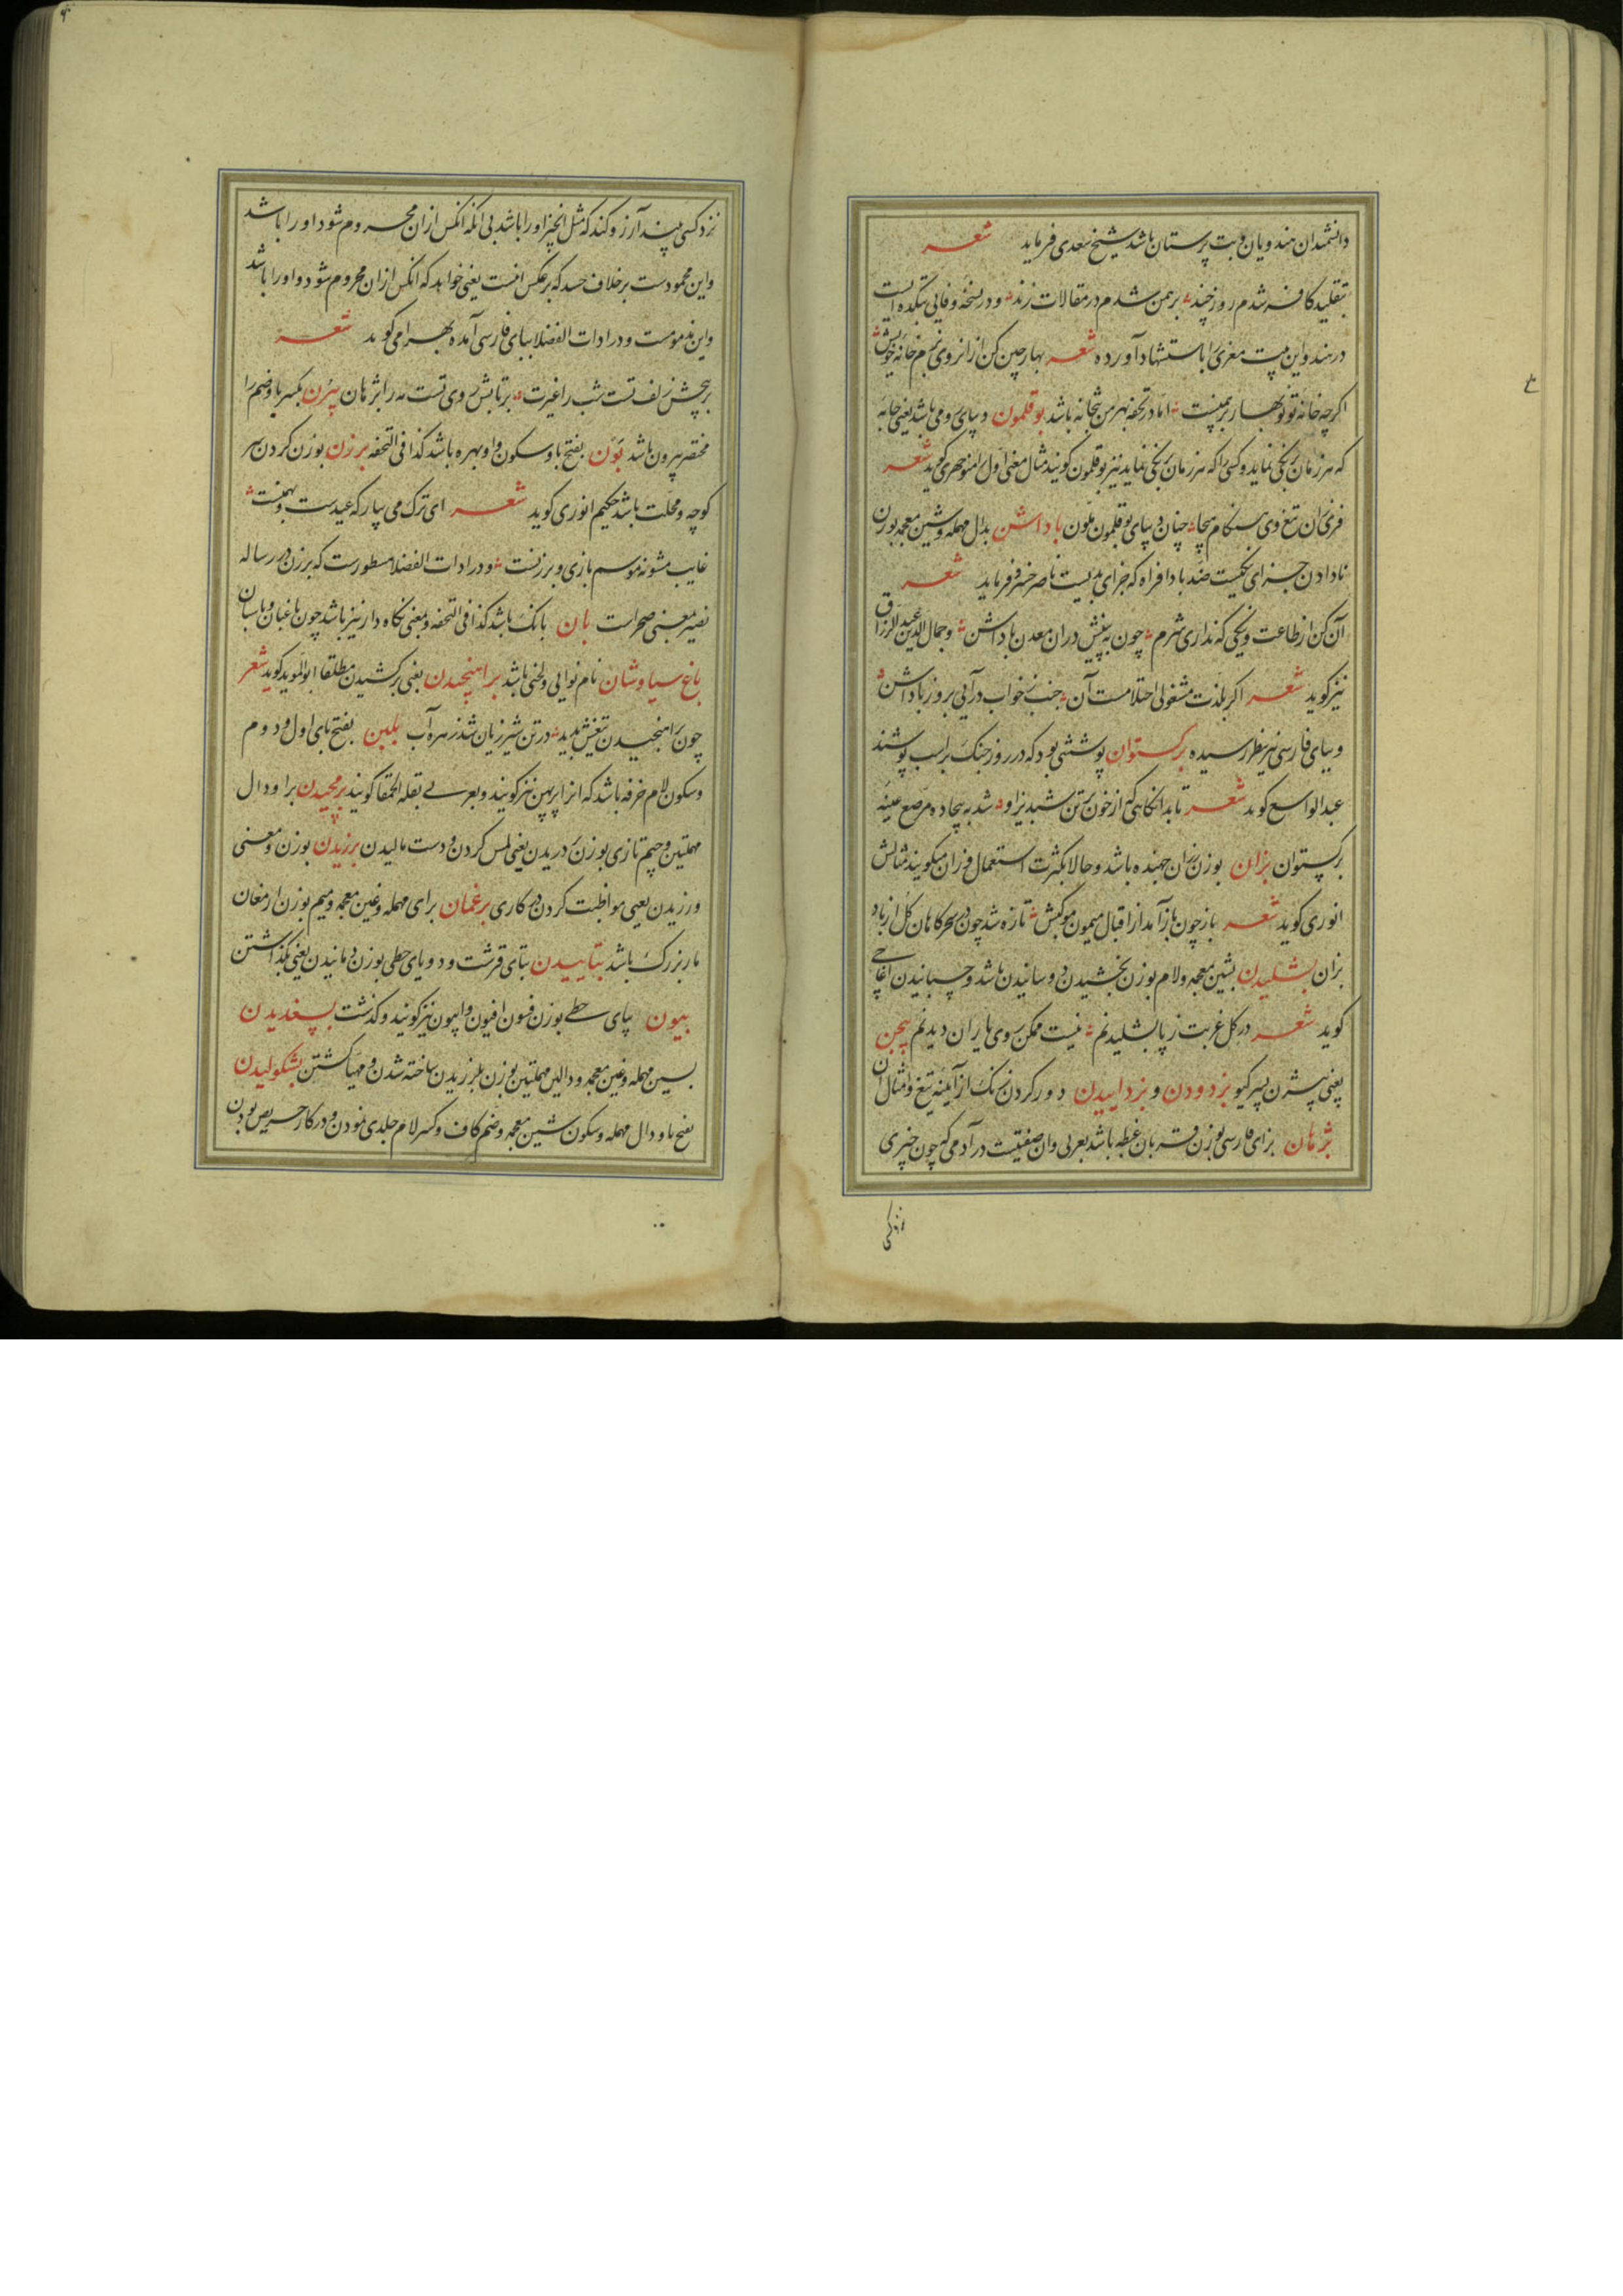 دانشمندان هندویان و بت پرستان باشد شیخ سعدی فرماید شعر
بتقلید کافر شدم روز چند برهمن شدم در مقالات زند و در نسخه وفایی بتکده ایست
در هند و این بیت معزی را باستشهاد آورده شعر بهار چین کن از آن روی بزم خانه خویش
اگرچه خانه تو نوبهار برهمنست اما در تحفه بهرمن بتخانه باشد بوقلمون دیبای رومی باشد یعنی جامه
که هر زمان برنگی نماید و کسی را که هر زمان برنگی نماید نیز بوقلمون گویند مثال معنی اول را منوچهری گوید شعر
فری آن تیغ وی هنگام هیجا چنان دیبای بوقلمون ملون باداشن بدال مهمله و شین معجمه بوزن
نادادن جزای نیکیست ضد بادافراه که جزای بدیست ناصر خسرو فرماید شعر
آن کن از طاعت و نیکی که نداری شرم چون ببینیش در آن معدن باداشن و جمال الدین عبد الرزاق
نیز گوید شعر اگر بلذت مشغولی احتلامست آن جنب ز خواب درآیی بروز باداشن
و ببای فارسی نیز بنظر رسیده برگستوان پوششی بود که در روز جنگ بر اسب پوشند
عبد الواسع گوید شعر تا بدانگاهی که از خون تن شبدیز او شد به بیجاده مرصع عیبه
برگستوان بزان بوزن خزان جهنده باشد و حالا بکثرت استعمال وزان میگویند مثالش
انوری گوید شعر باز چون باز آمد از اقبال میمون موکبش تازه شد چون در سحرگاهان گل از باد
بزان بشلیدن بشین معجمه و لام بوزن بخشیدن دوسانیدن باشد و چسبانیدن آغاجی
گوید شعر در گل غربت ز پا بشلیدنم نیست ممکن روی یاران دیدنم بیجن
یعنی بیژن پسر گیو بزدودن و بزداییدن دور کردن زنگ از آیینه و تیغ و امثال آن
بژمان بزای فارسی بوزن قربان غبطه باشد بعربی و آن صفتیست در آدمی که چون چیزی
نزد کسی
نزد کسی بیند آرزو کند که مثل آنچیز او را باشد بی آنکه آنکس از آن محروم شود او را باشد
و این محمودست برخلاف حسد که بر عکس اینست یعنی خواهد که آنکس از آن محروم شود و او را باشد
و این مذمومست و در ادات الفضلا ببای فارسی آمده بهرامی گوید شعر
بر پیچش زلف تست شب را غیرت بر تابش روی تست مه را بژمان بیرن بکسر با و ضم را
مختصر بیرون باشد بون بفتح با و سکون واو بهره باشد کذا فی التحفه برزن بوزن کردن سر
کوچه و محلت باشد حکیم انوری گوید شعر ای ترک می بیار که عیدست و بهمنست
غایب مشو نه موسم بازی و برزنست و در ادات الفضلا مسطورست که برزن در رساله
نصیر بمعنی صحراست بان بانگ باشد کذا فی التحفه و بمعنی نگاه دار نیز باشد چون باغبان و پاسبان
باغ سیاوشان نام نوایی و لحنی باشد براهنجیدن یعنی برکشیدن مطلقا ابو الموید گوید شعر
چون براهنجیدن تیغش بدید در تن شیر ژیان شد زهره آب بلبن بفتح بای اول و دوم
و سکون لام خرفه باشد که آنرا پرپهن نیز گویند و بعربی بقلة الحمقا گویند برمجیدن برا و دال
مهملتین و جیم تازی بوزن دردریدن یعنی لمس کردن و دست مالیدن برزیدن بوزن و معنی
ورزیدن یعنی مواظبت کردن در کاری برغمان برای مهمله و غین معجمه و میم بوزن ارمغان
مار بزرگ باشد بتاییدن بتای قرشت و دو یای حطی بوزن دمانیدن یعنی بگذاشتن
بیون بیای حطی بوزن فسون افیون و اپیون نیز گویند و گذشت بسغدیدن
بسین مهمله و غین معجمه و دالین مهملتین بوزن بلرزیدن ساخته شدن و مهیا گشتن بشکولیدن
بفتح با و دال مهمله و سکون شین معجمه و ضم کاف و کسر لام جلدی نمودن و در کار حریص بودن